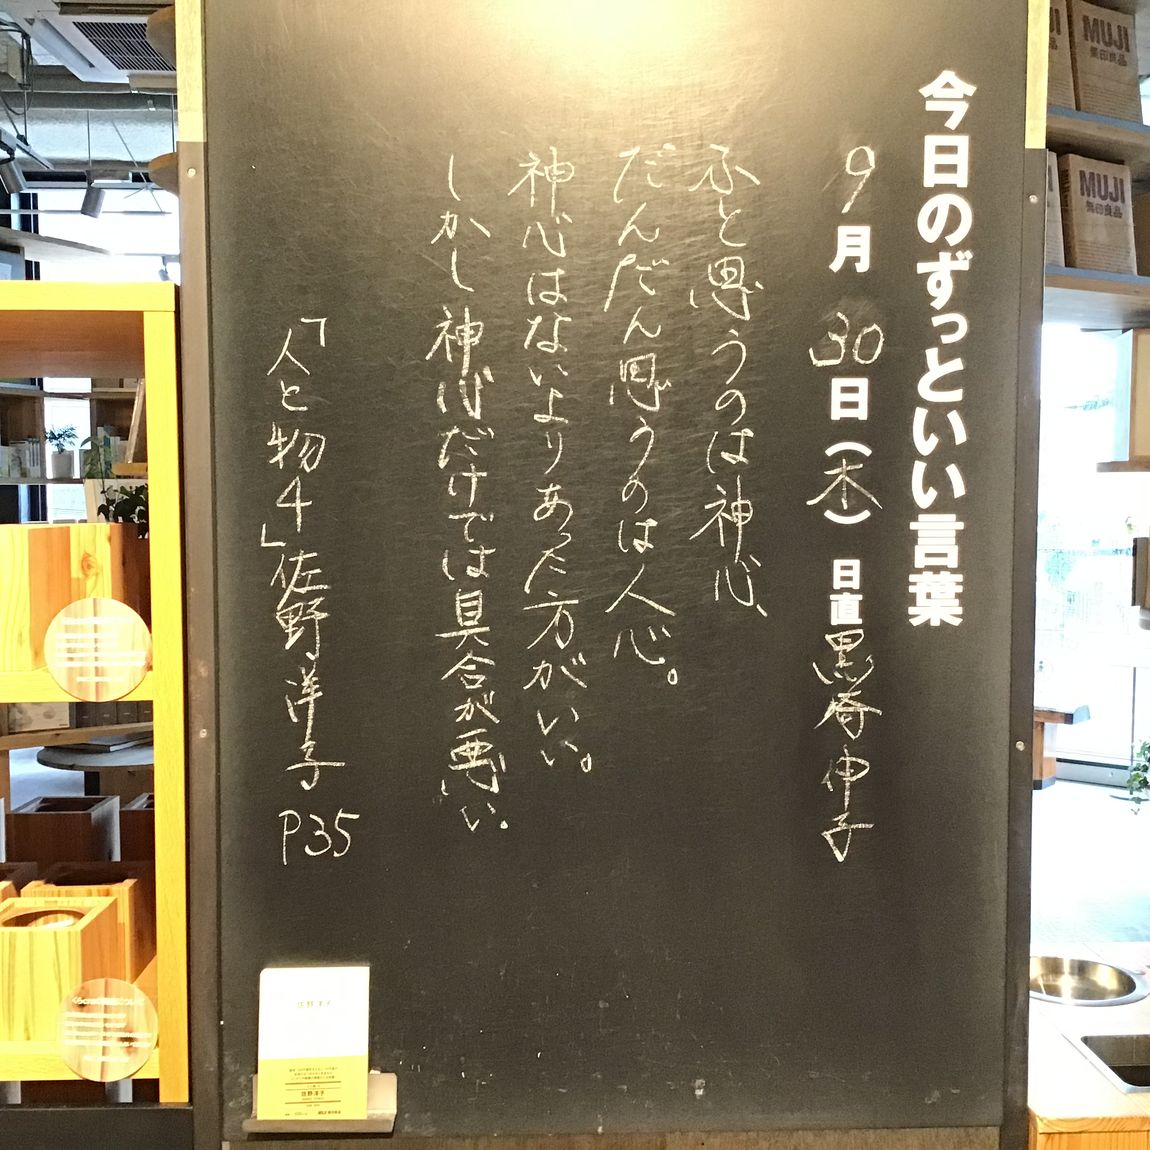 今日のずっといい言葉
9月30日(木) 日直 黒脊伸子
ふと思うのは神心、
だんだん思うのは人心。
神心はないよりあった方がいい。
しかし神心だけでは具合が悪い。
「人と物4」佐野洋子 P35
MUJI
無印良品
MUJI
無印良品
佐野洋子
佐野洋子
MUJI 無印良品